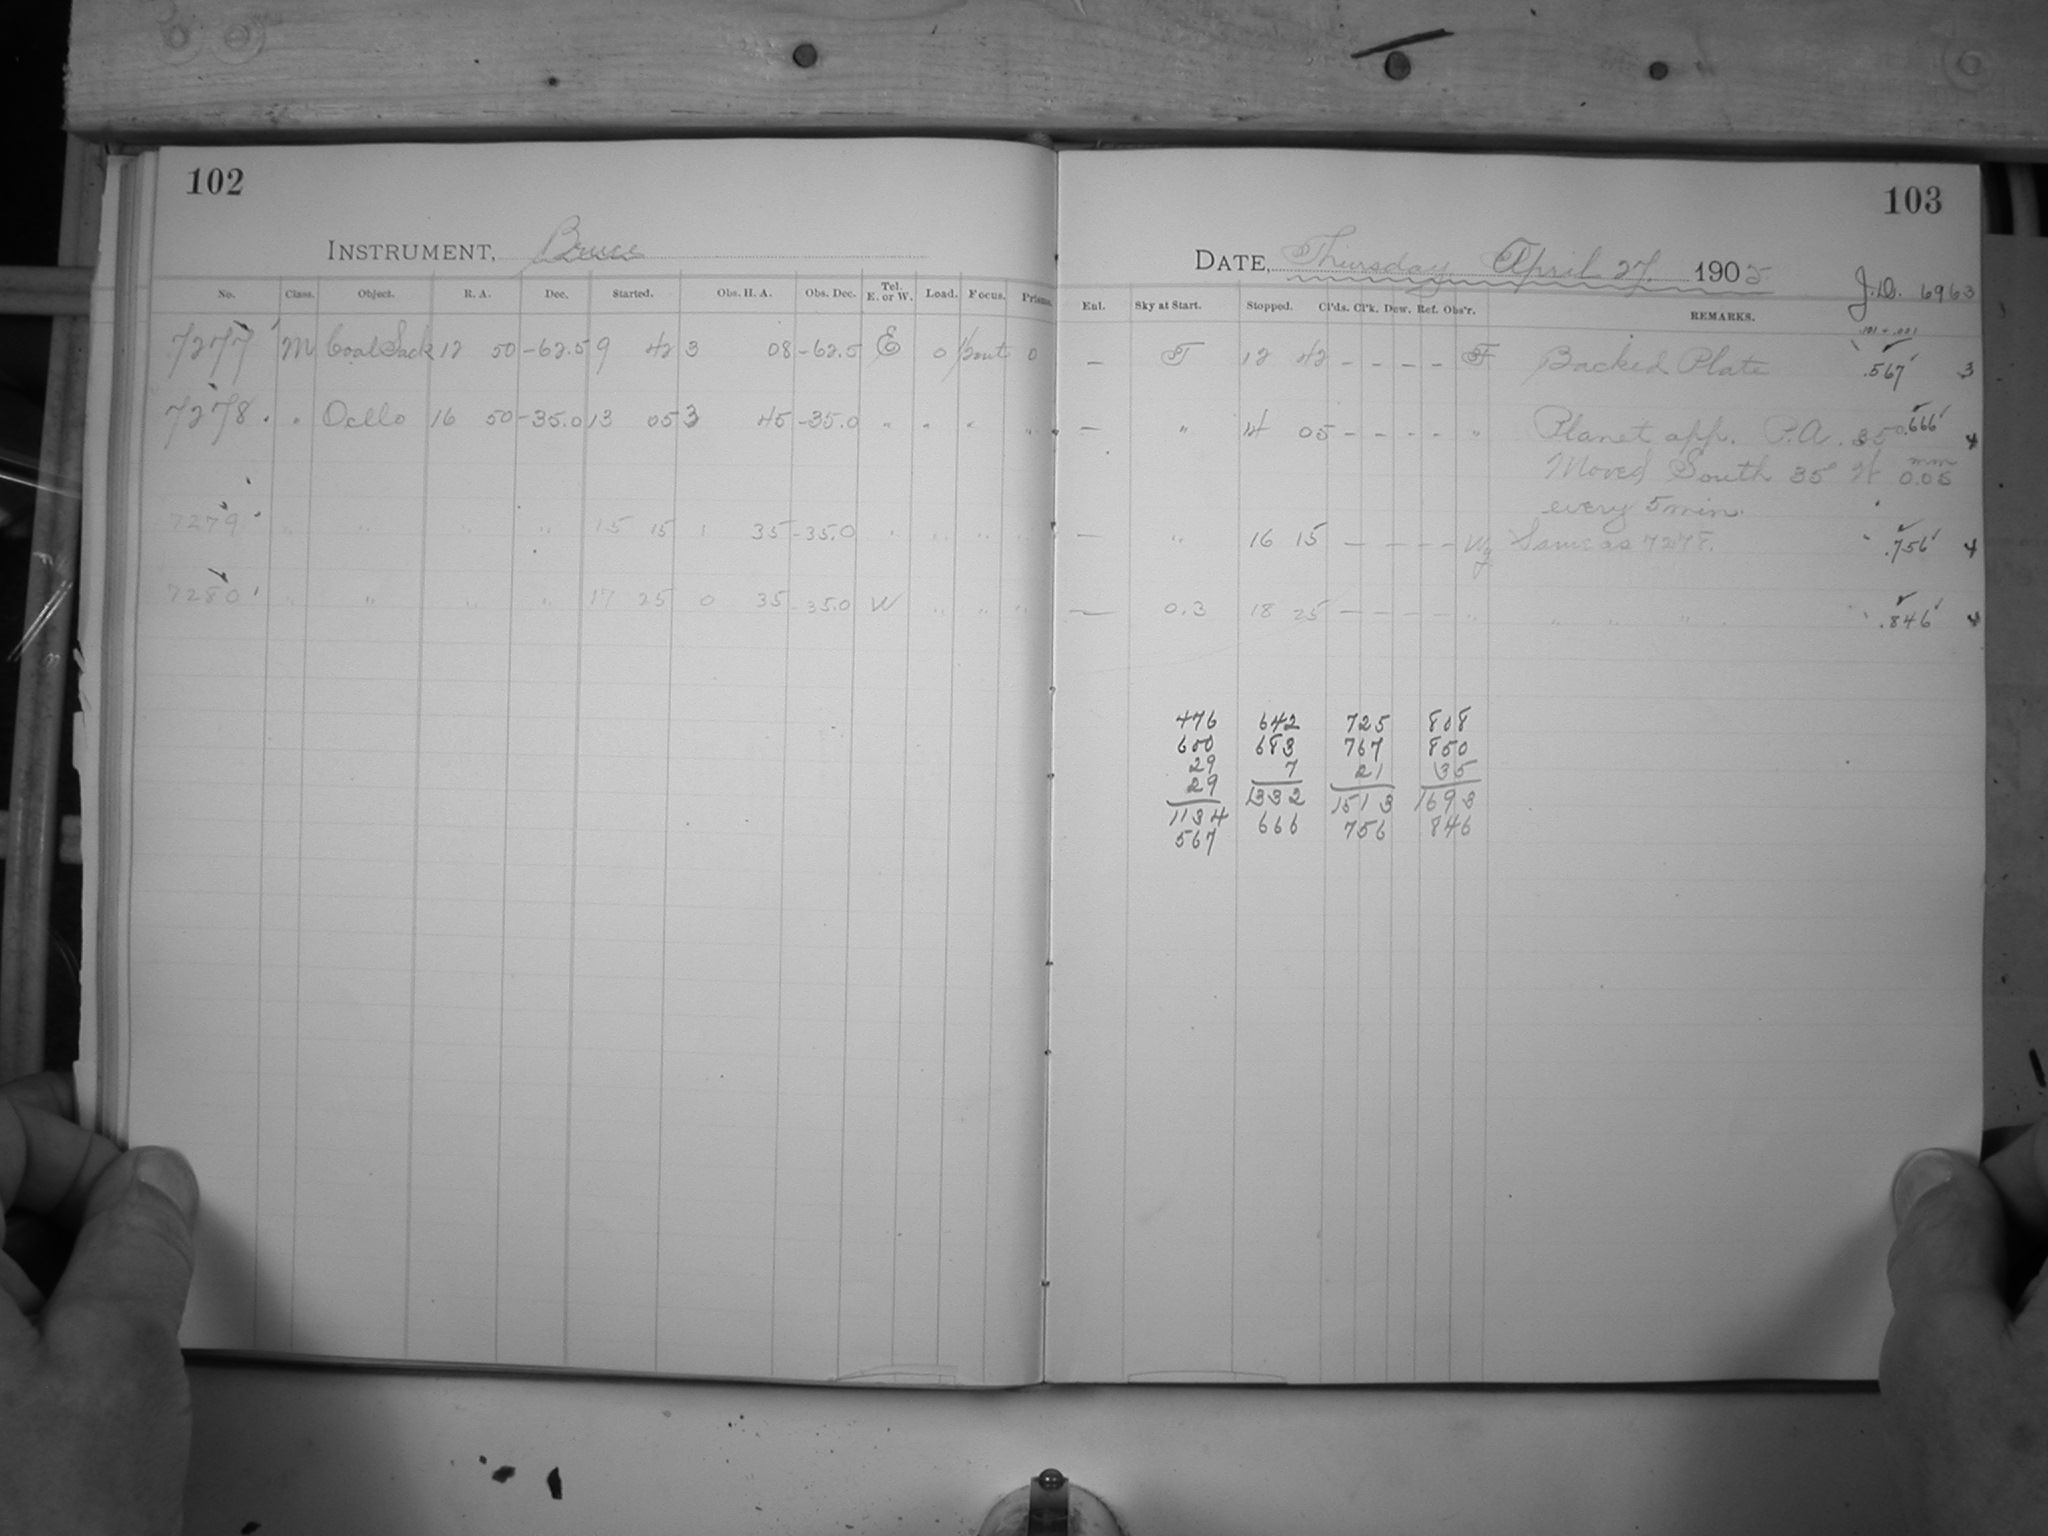 102
INSTRUMENT, Bruce
No. Class. Object. R. A. Dec. Started. Obs. H. A. Obs. Dec. Tel. E. or W. Load. Focus. Prisms.
7277 M Coal Sack 12 50 -62.5 9 42 3 08 -62.5 E 0 0
7278 " Ocllo 16 50 -35.0 13 05 3 45 -35.0 " " " "
7279 " " " " 15 15 1 35 -35.0 " " " "
7280 " " " " 17 25 0 35 -35.0 W " " "
103
DATE, Thursday April 27. 1905
J.D. 6963
Enl. Sky at Start. Stopped. Cl'ds. Cl'k. Dew. Ref. Obs'r. REMARKS.
.101 + .001
— 12 42 - - - - Backed Plate .567 3
— " 14 05 - - - - " Planet app. P.A. 35° .666 4
Moved South 35° W 0.05 mm
every 5 min.
— " 16 15 — — — — Same as 7278. .756 4
— 0.3 18 25 — — — — " " " " .846 4
476 642 725 808
600 683 767 850
29 7 21 35
29 1332 1513 1693
1134 666 756 846
567